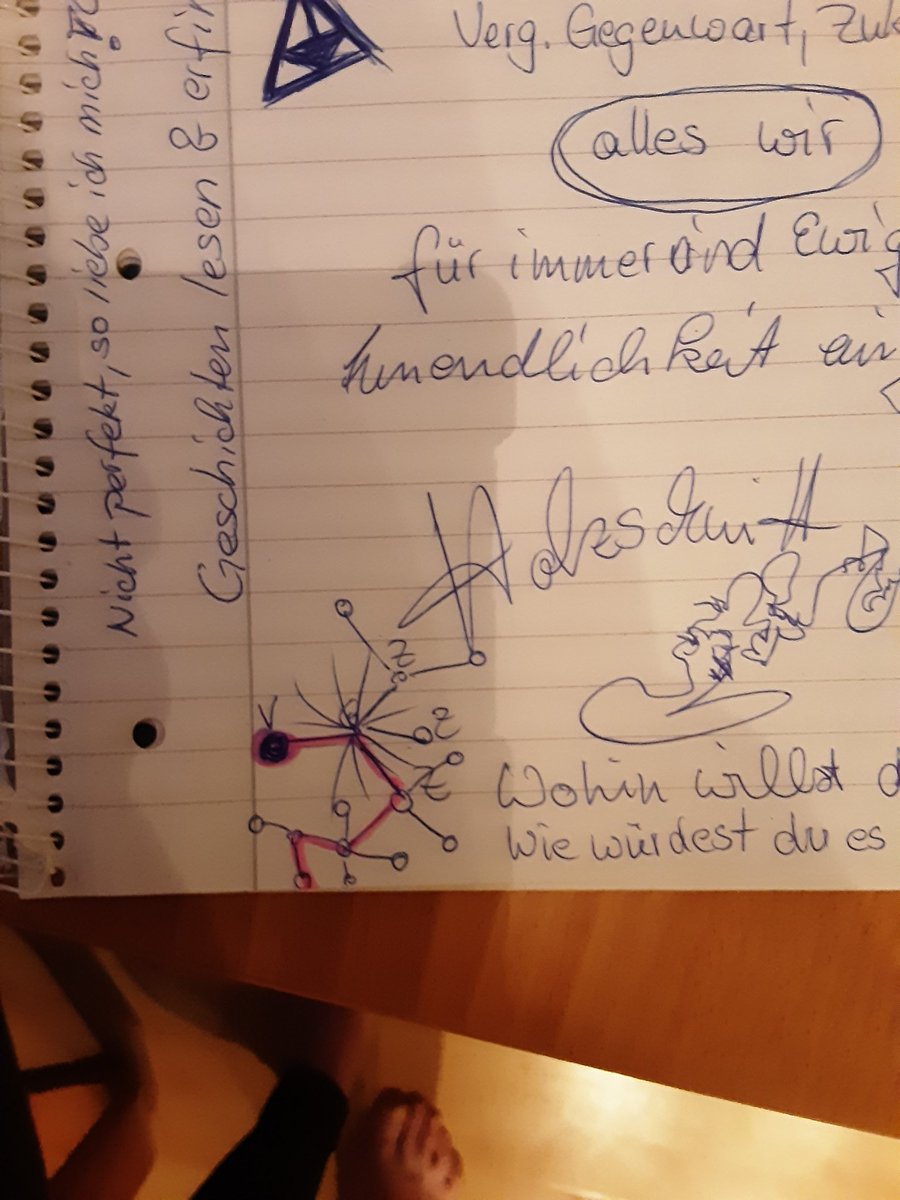 Nicht perfekt, so liebe ich mich
Geschichten lesen & erfin
Verg. Gegenwart, Zuk
alles wir
für immer und Ewig
unendlichkeit ein
Z
Z
Z
V
Wohin willst d
Wie würdest du es